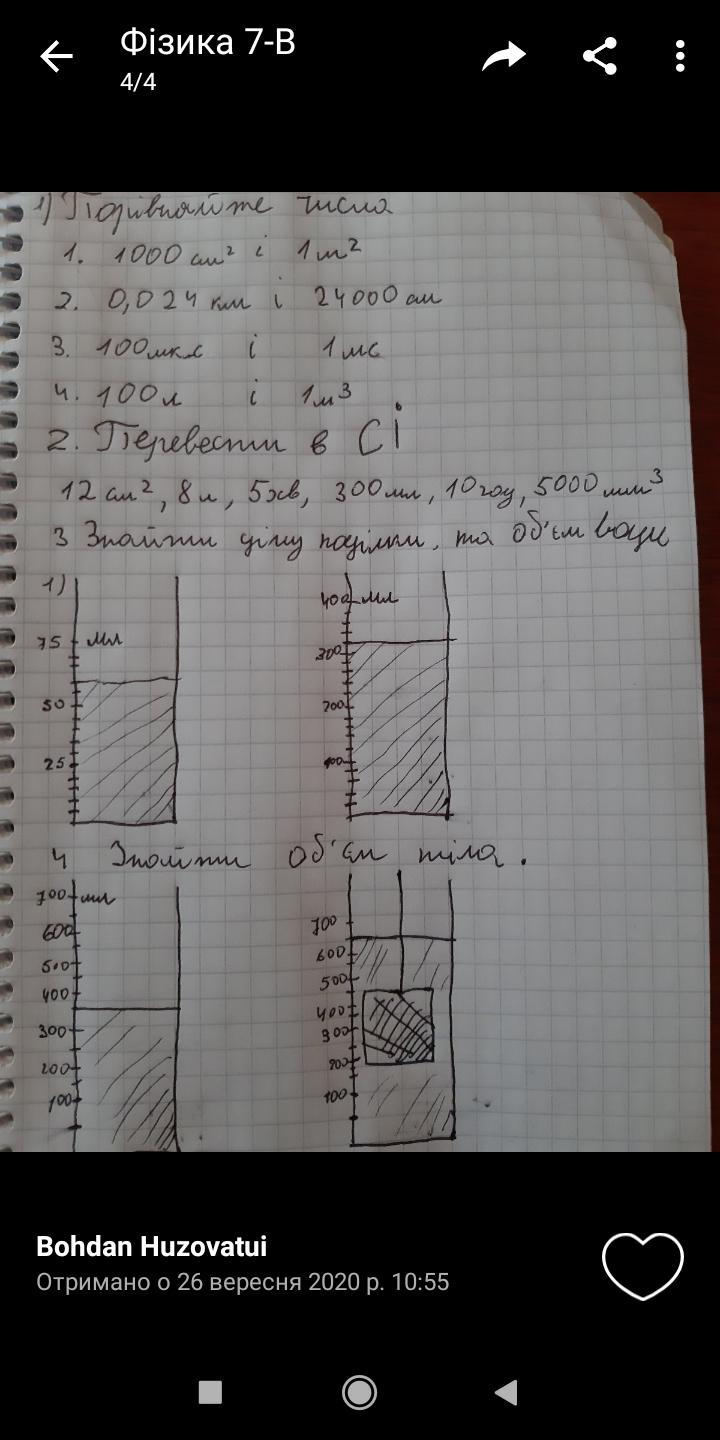 Фізика 7-В
4/4
1) Порівняйте числа
1. 1000 см² і 1 м²
2. 0,024 км і 24000 см
3. 100 мкс і 1 мс
4. 100 л і 1 м³
2. Перевести в Сі
12 см², 8 л, 5 хв, 300 мл, 10 год, 5000 мм³
3 Знайти ціну поділки, та об'єм води
1)
75 мл
50
25
400 мл
300
200
100
4 Знайти об'єм тіла.
700 мл
600
500
400
300
200
100
700
600
500
400
300
200
100
Bohdan Huzovatui
Отримано о 26 вересня 2020 р. 10:55